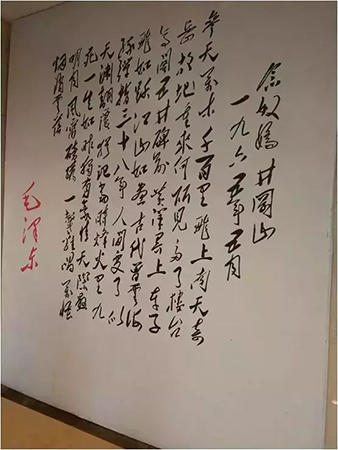 念奴娇 井冈山
一九六五年五月
参天万木千百里飞上南天奇
岳故地重来何所见多了楼台
亭阁五井碑前黄洋界上车子
飞如跃江山如画古代曾云海
绿弹指三十八年人间变了似
天渊翻覆犹记当时烽火里九
死一生如昨独有豪情天际悬
明月风雷磅礴一声鸡唱万怪
烟消云落
毛泽东